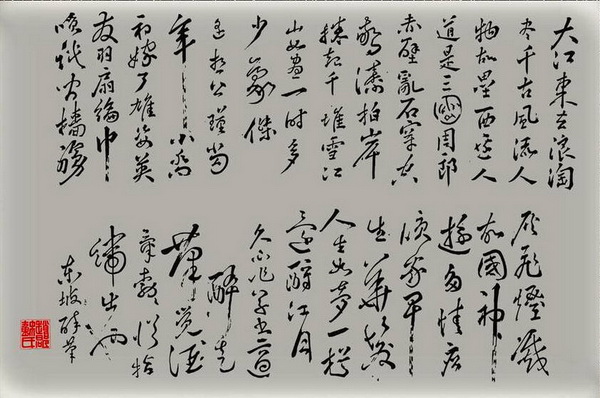 大江東去浪淘
尽千古風流人
物故壘西邊人
道是三國周郎
赤壁亂石穿空
驚濤拍岸
捲起千堆雪江
山如畫一時多
少豪傑
遙想公瑾當
年小喬
初嫁了雄姿英
發羽扇綸巾
談笑間檣艣
灰飛煙滅
故國神
遊多情應
笑我早
生華髮
人生如夢一樽
還酹江月
久不作草書適
醉走
筆覺酒
氣勃勃從指
端出也
東坡醉筆